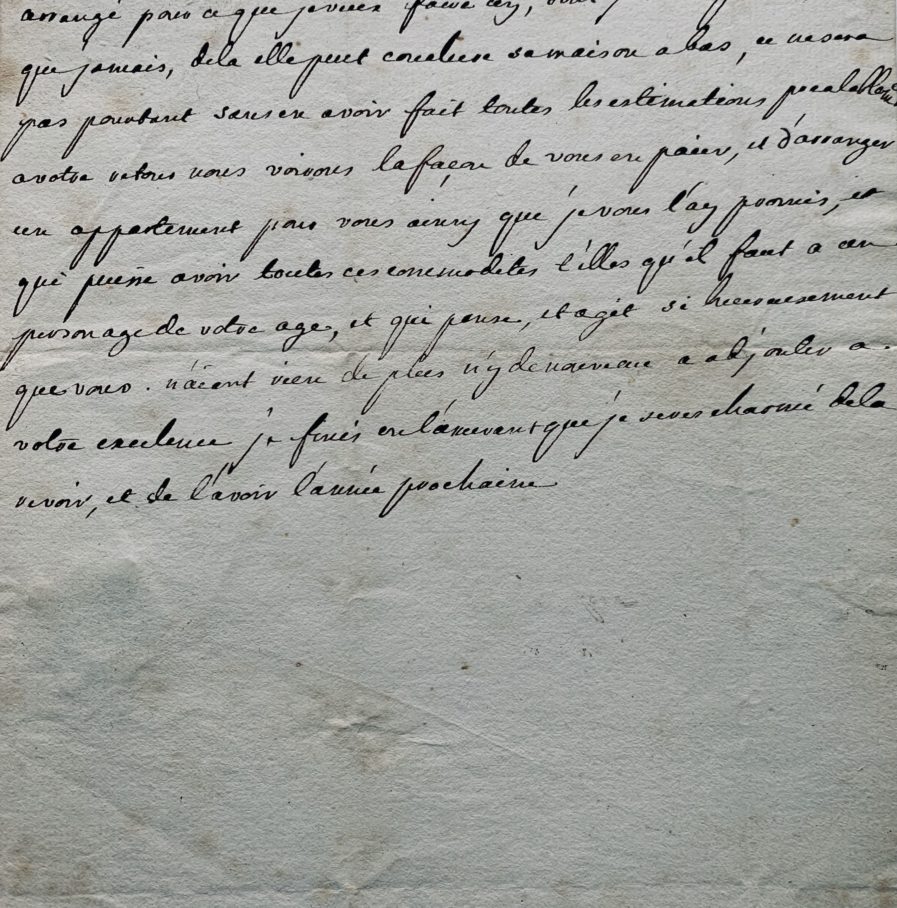 arrangé pour ce que je veux faire
que jamais, dela elle peut conclure sa maison a bas, ce ne sera
pas pourtant sans en avoir fait toutes les estimations prealables
a votre retour nous voirons la façon de vous en païer, et d'arranger
un appartement pour vous ainsy que je vous l'ay promis, et
qui puisse avoir toutes ces commodités t'elles qu'il faut a un
personage de votre age, et qui pense, et agit si
que vous. n'aïant rien de plus n'y de nouveau a adjouter a
votre excelence je finis en l'assurant que je serois charmé de la
revoir, et de l'avoir l'année prochaine